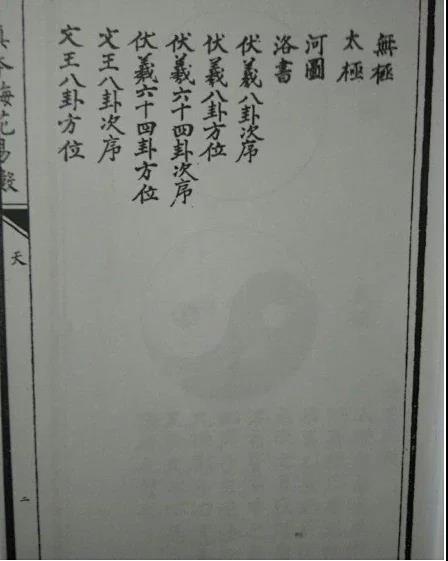 無極
太極
河圖
洛書
伏羲八卦次序
伏羲八卦方位
伏羲六十四卦次序
伏羲六十四卦方位
文王八卦次序
文王八卦方位
梅花易數
天
二